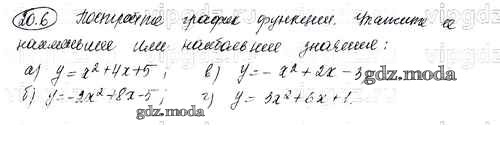 20.6 Постройте график функции. Укажите её
наименьшее или наибольшее значение:
а) y = x² + 4x + 5 ; в) y = - x² + 2x - 3
gdz.moda
б) y = -2x² + 8x - 5 ; г) y = 3x² + 6x + 1.
gdz.moda